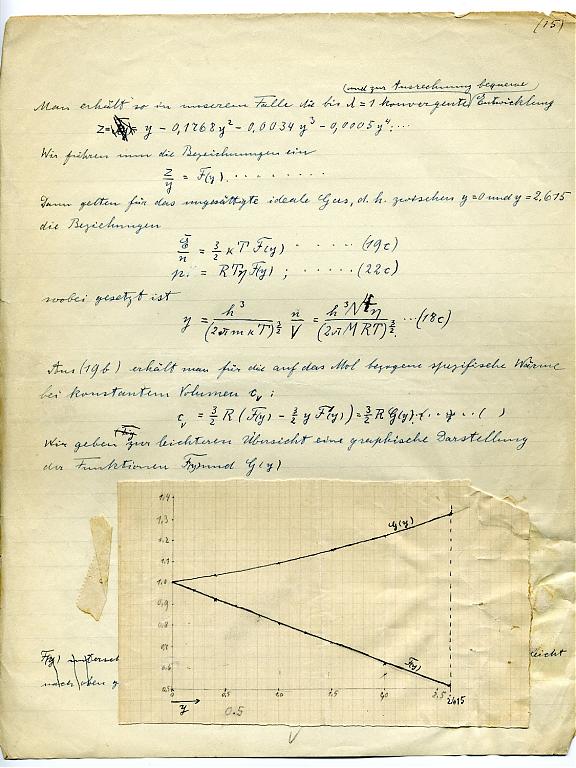 (15)
(und zur Ausrechnung bequeme)
Man erhält so in unserem Falle die bis λ = 1 konvergente Entwicklung
z = y - 0,1768 y² - 0,0034 y³ - 0,0005 y⁴ . . .
Wir führen nun die Bezeichnungen ein
z/y = F(y). . . . . . . . .
Dann gelten für das ungesättigte ideale Gas, d. h. zwischen y = 0 und y = 2,615
die Beziehungen
Ē/n = 3/2 κT F(y) . . . . . . (19c)
p = RTη F(y) ; . . . . . . (22c)
wobei gesetzt ist
y = h³/(2πmκT)^3/2 n/V = h³N⁴η/(2πMRT)^3/2 . . . (18c)
Aus (19b) erhält man für die auf das Mol bezogene spezifische Wärme
bei konstantem Volumen cᵥ :
cᵥ = 3/2 R (F(y) - 3/2 y F'(y)) = 3/2 R G(y) . . . . ( )
Wir geben zur leichteren Übersicht eine graphische Darstellung
der Funktionen F(y) und G(y)
1.4
1.3
1.2
1.1
1.0
0.9
0.8
0.7
0.6
0.5
G(y)
F(y)
0 0.5 1.0 1.5 2.0 2.5 2.615
y
0.5
F(y)
leicht
nach oben g